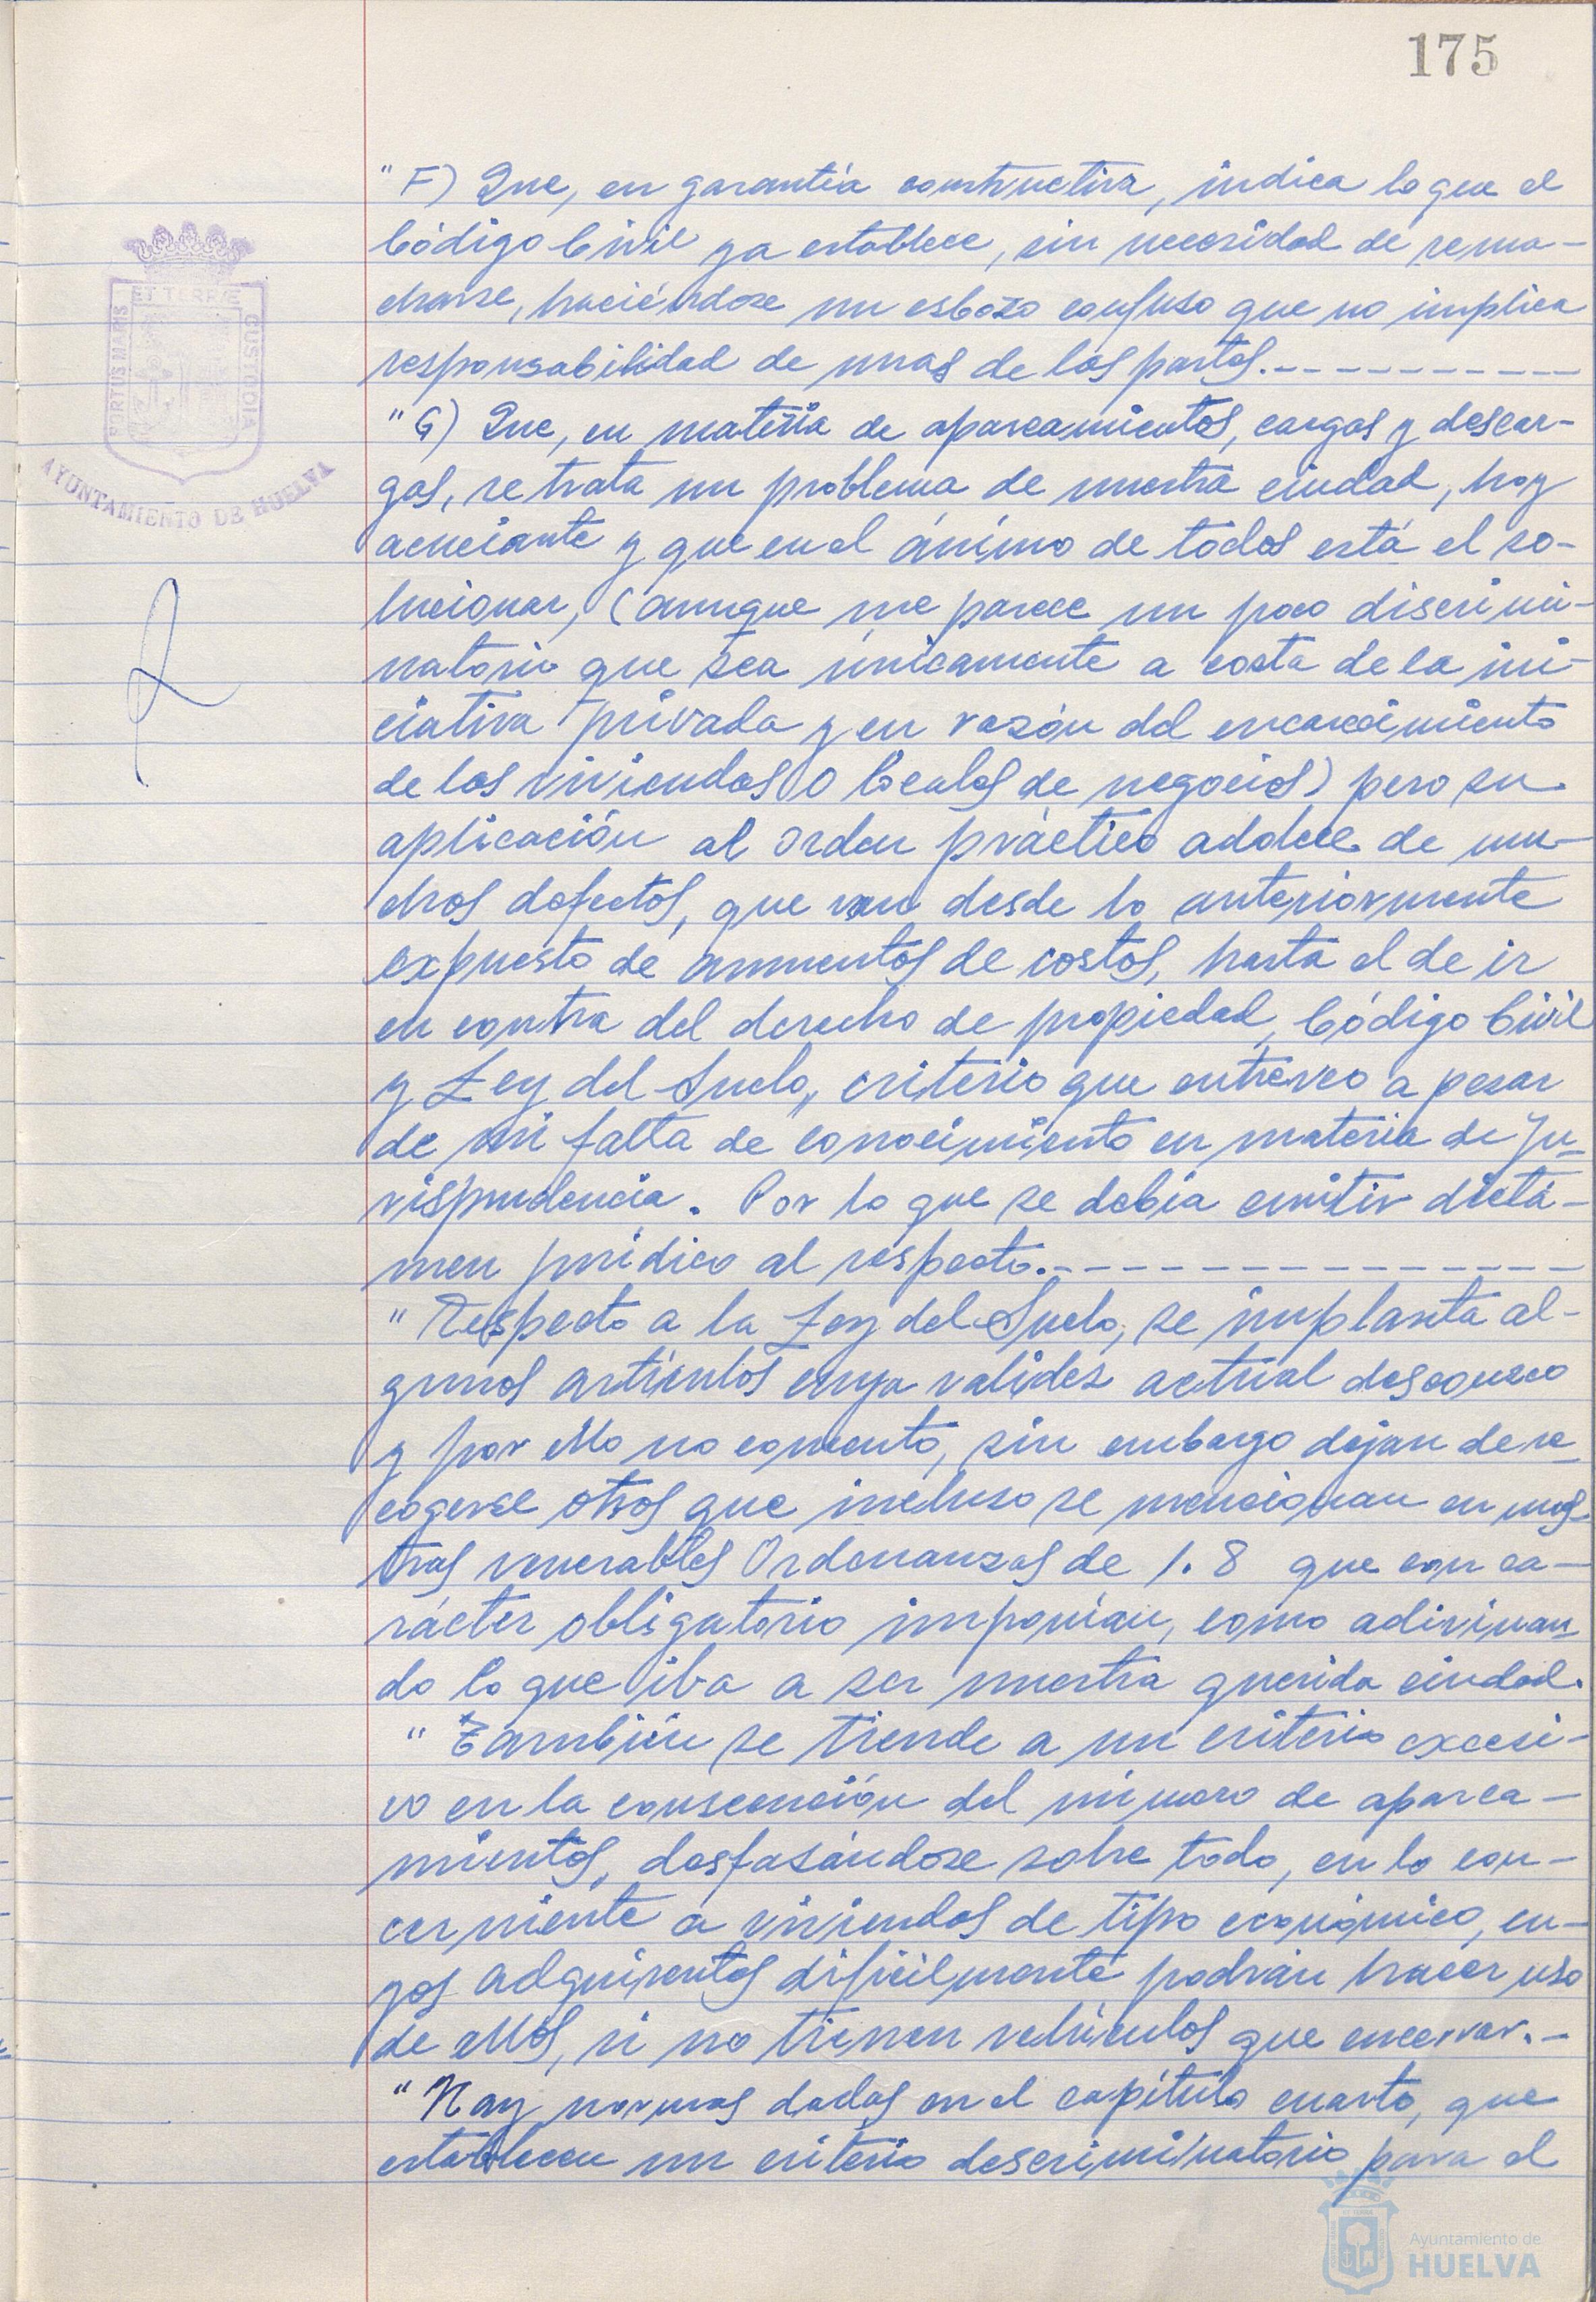 175
"F) Que, en garantía constructiva, indica lo que el
Código Civil ya establece, sin necesidad de rema-
charse, haciéndose un esbozo confuso que no implica
responsabilidad de unas de las partes.----------
"G) Que, en materia de aparcamientos, cargas y descar-
gas, se trata un problema de nuestra ciudad, hoy
acuciante y que en el ánimo de todos está el so-
lucionar, (aunque me parece un poco discrimi-
natorio que sea únicamente a costa de la ini-
ciativa privada y en razón del encarecimiento
de las viviendas o locales de negocios) pero su
aplicación al orden práctico adolece de mu-
chos defectos, que van desde lo anteriormente
expuesto de aumentos de costos, hasta el de ir
en contra del derecho de propiedad, Código Civil
y Ley del Suelo, criterio que entreveo a pesar
de mi falta de conocimiento en materia de Ju-
risprudencia. Por lo que se debía emitir dictá-
men jurídico al respecto.---------------
"Respecto a la Ley del Suelo, se implanta al-
gunos artículos cuya validez actual desconozco
y por ello no comento, sin embargo dejan de re-
cogerse otros que incluso se mencionan en nues-
tras venerables Ordenanzas de 1.8 que con ca-
rácter obligatorio imponían, como adivinan-
do lo que iba a ser nuestra querida ciudad.
"También se tiende a un criterio excesi-
vo en la consecución del número de aparca-
mientos, desfasándose sobre todo, en lo con-
cerniente a viviendas de tipo económico, cu-
yos adquirentes difícilmente podrán hacer uso
de ellos, si no tienen vehículos que encerrar.-
"Hay normas dadas en el capítulo cuarto, que
establecen un criterio descriminatorio para el
PORTUS MARIS
ET TERRAE
CUSTODIA
AYUNTAMIENTO DE HUELVA
Ayuntamiento de
HUELVA